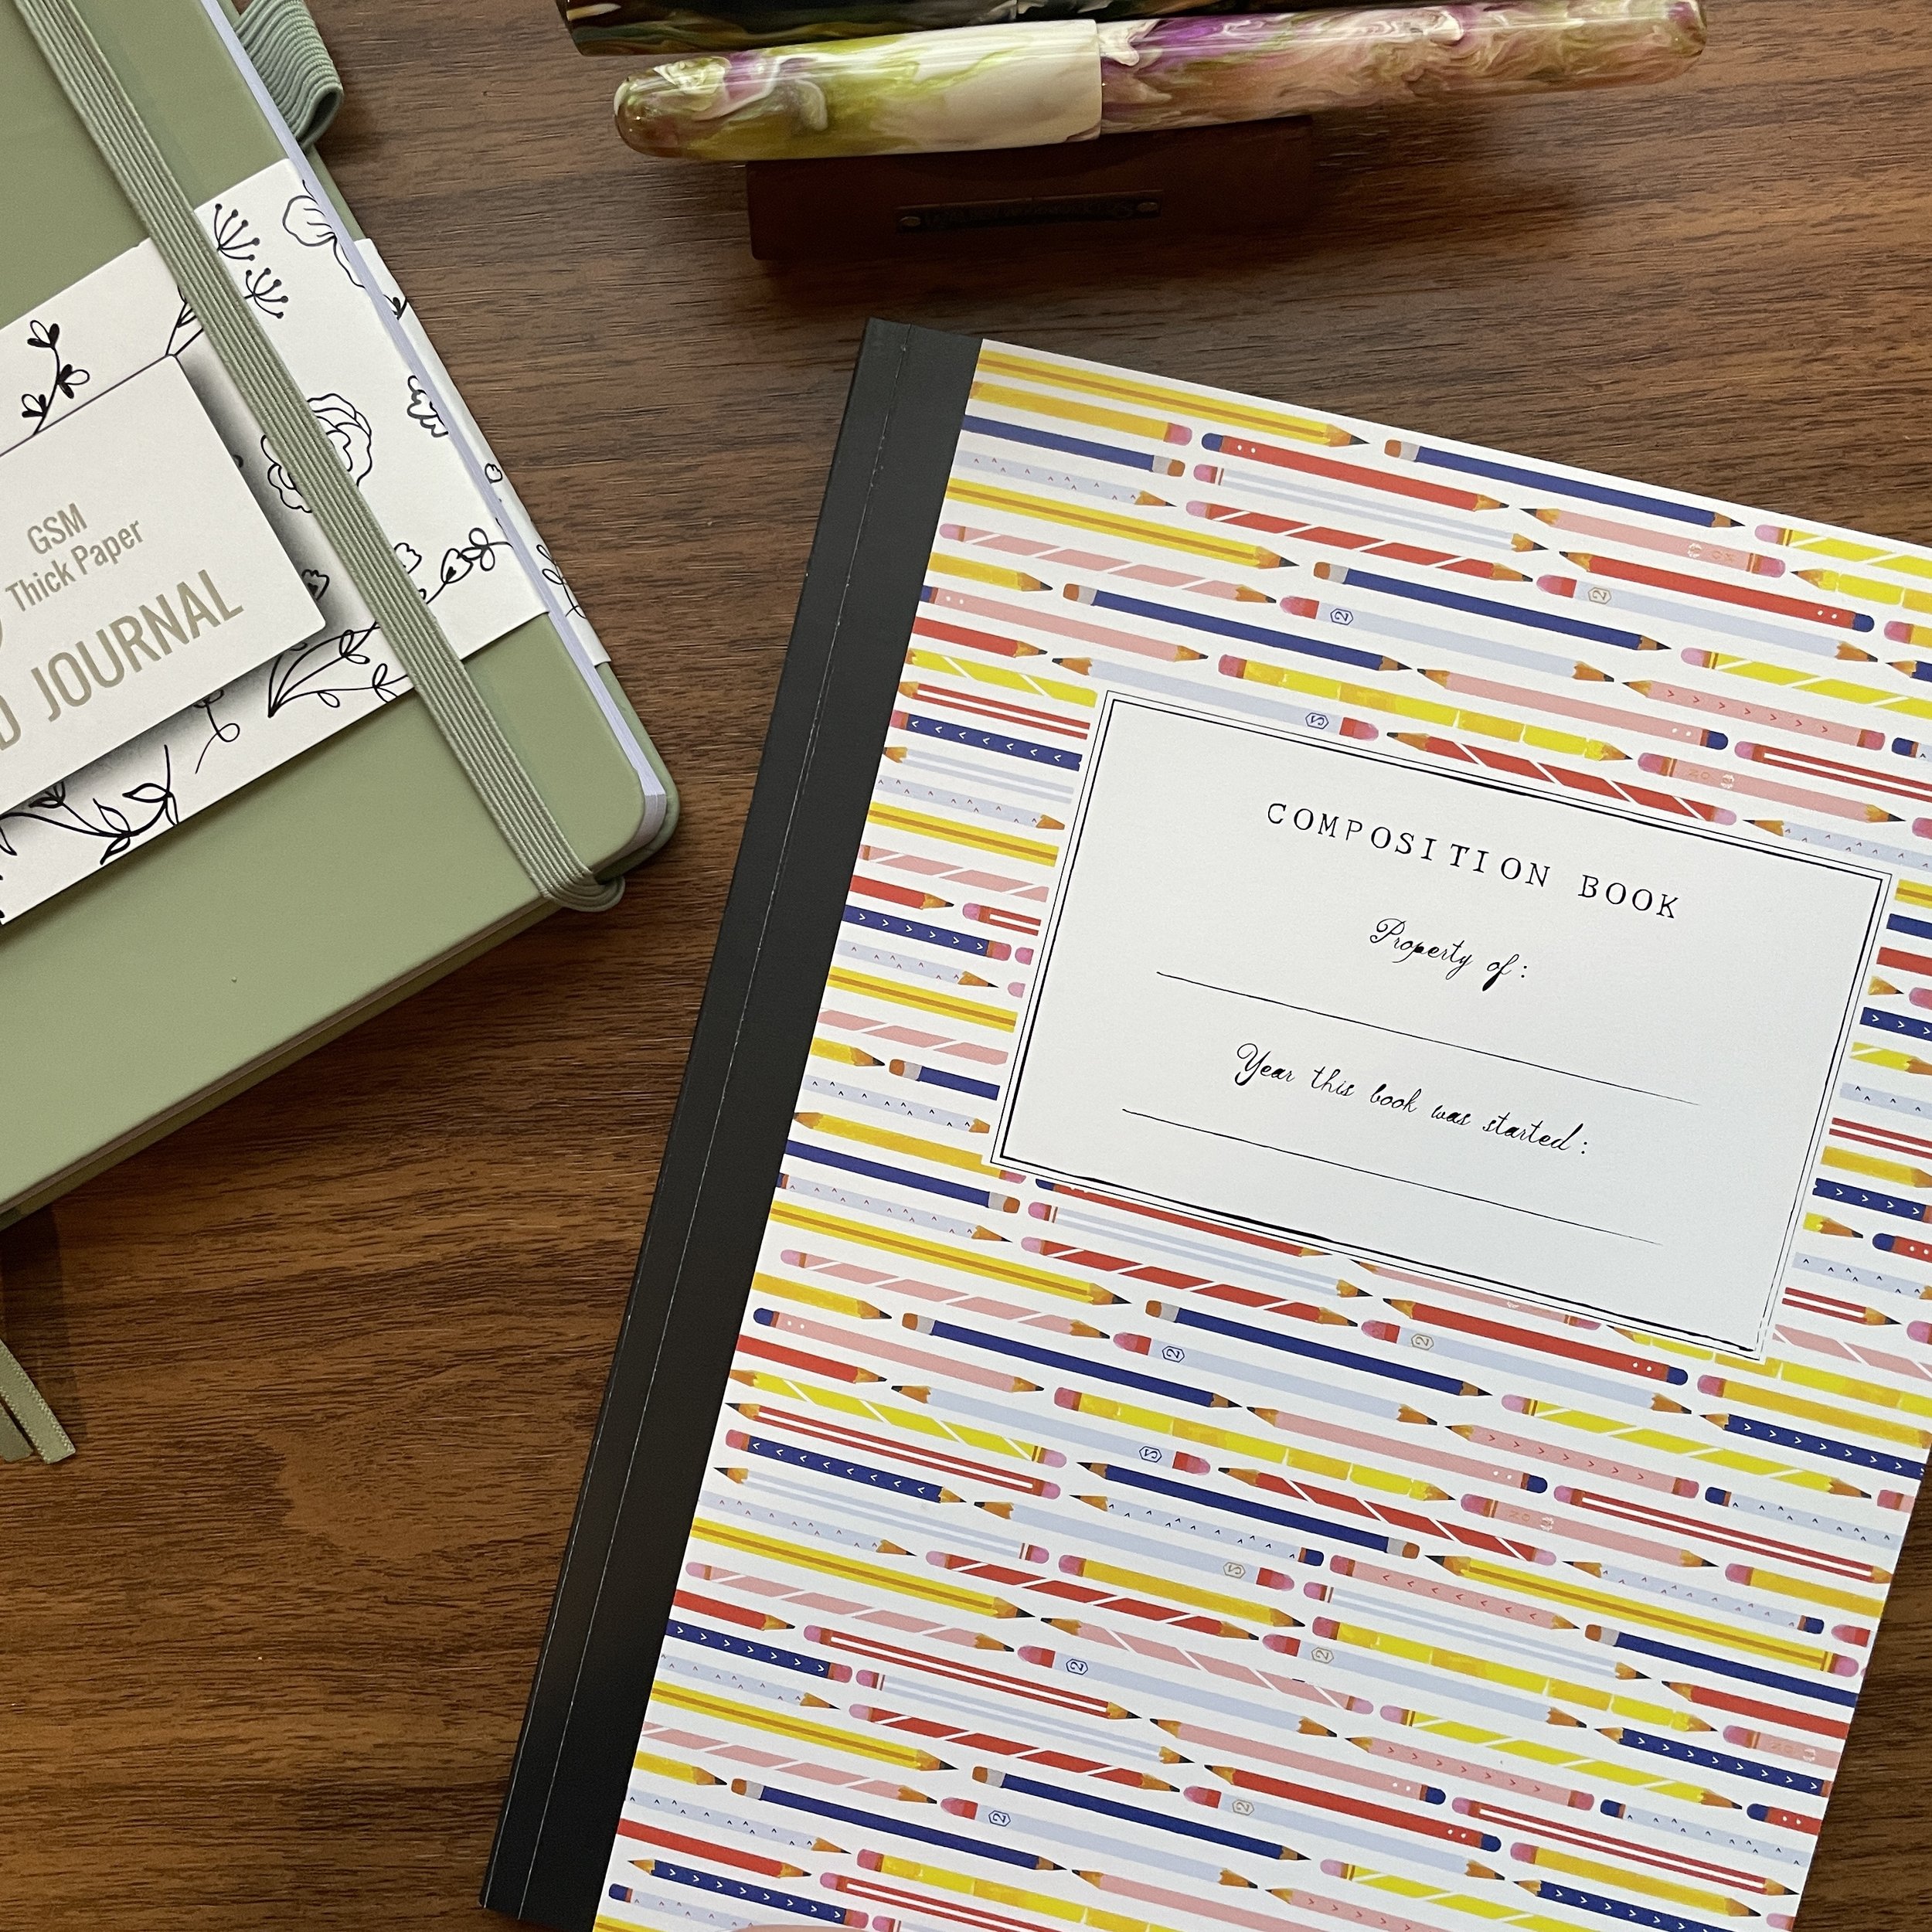 GSM
Thick Paper
D JOURNAL
COMPOSITION BOOK
Property of:
Year this book was started: